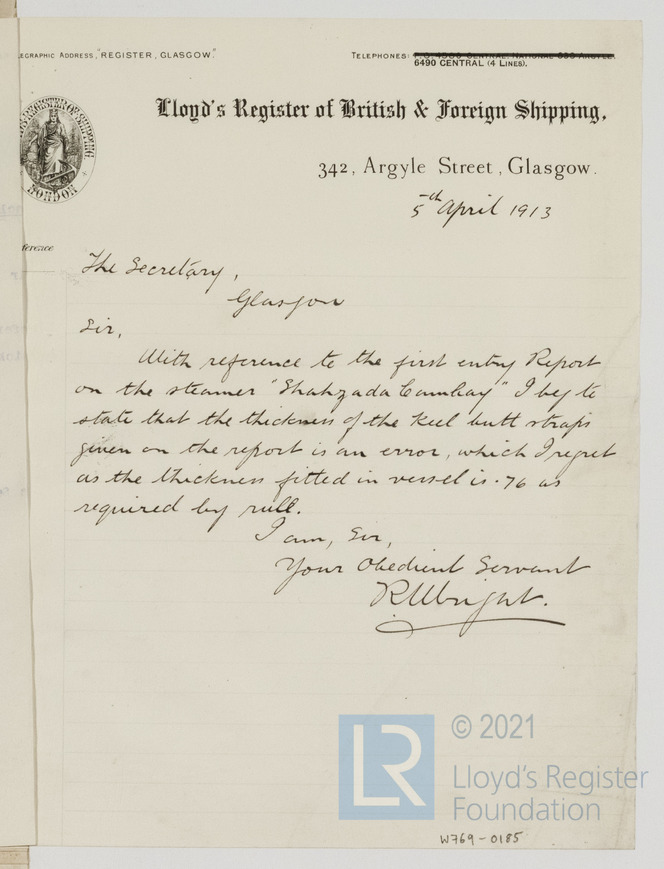 EGRAPHIC ADDRESS, "REGISTER, GLASGOW."
TELEPHONES:
6490 CENTRAL (4 LINES).
Lloyd's Register of British & Foreign Shipping,
342, Argyle Street, Glasgow.
LONDON
5th April 1913
ference
The Secretary,
Glasgow
Sir,
With reference to the first entry Report
on the steamer "Shahzada Cambay" I beg to
state that the thickness of the keel butt straps
given on the report is an error, which I regret
as the thickness fitted in vessel is .76 as
required by rule.
I am, Sir,
Your Obedient Servant
R Wright.
© 2021
LR
Lloyd's Register
Foundation
W769-0185